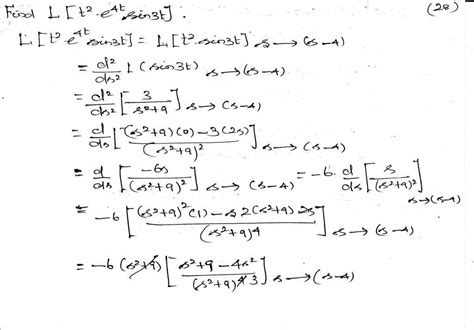 Find L[t².e⁴ᵗsin3t]. (28)
L[t².e⁴ᵗsin3t] = L[t².sin3t] s→(s-4)
= d²/ds² L(sin3t) s→(s-4)
= d²/ds² [3/(s²+9)] s→(s-4)
= d/ds [((s²+9)(0)-3(2s))/(s²+9)²] s→(s-4)
= d/ds [-6s/(s²+9)²] s→(s-4) = -6.d/ds [s/(s²+9)²] s→(s-4)
= -6 [((s²+9)²(1)-s2(s²+9)2s)/(s²+9)4] s→(s-4)
= -6(s²+9) [(s²+9-4s²)/(s²+9)4 3] s→(s-4)